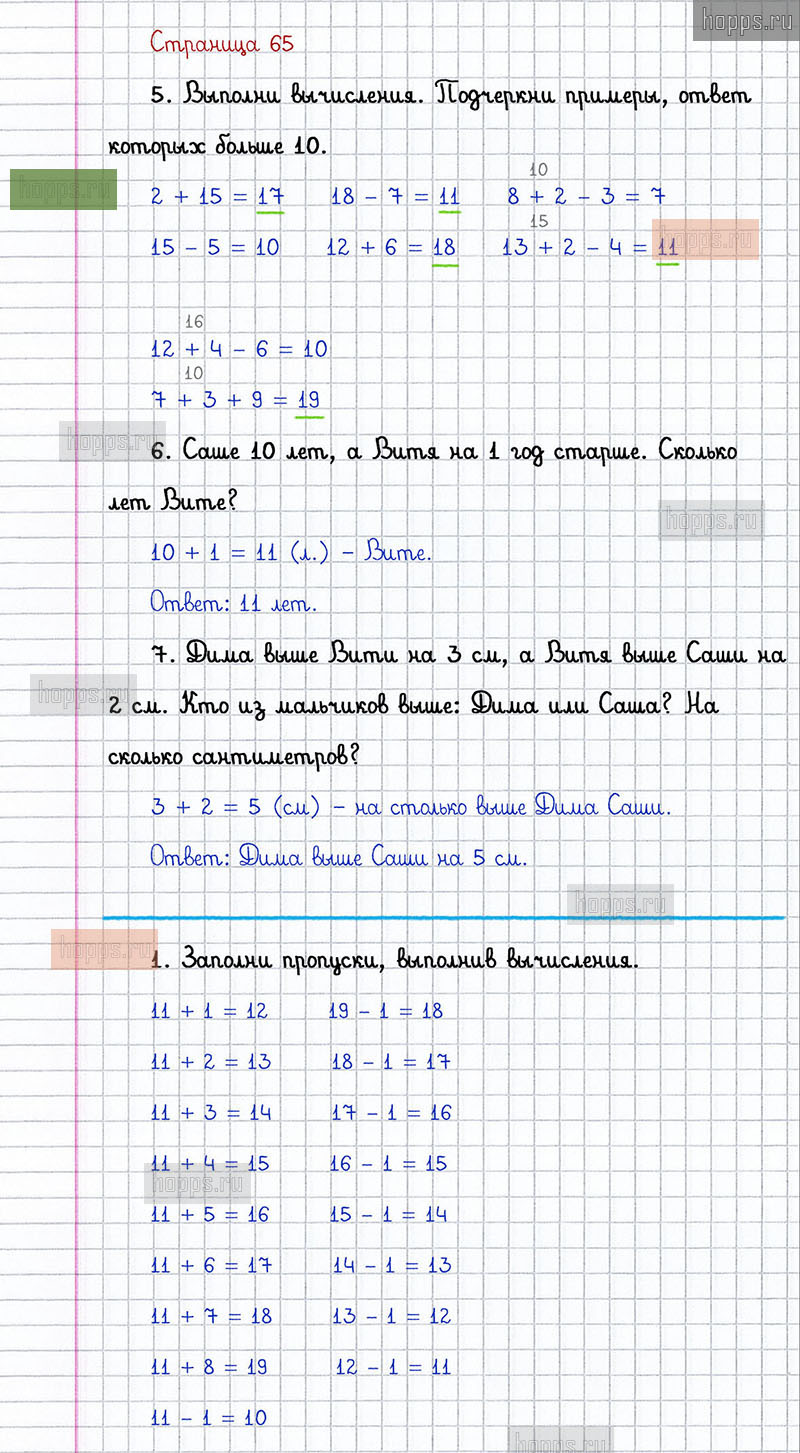 hopps.ru
Страница 65
5. Выполни вычисления. Подчеркни примеры, ответ
которых больше 10.
hopps.ru
10
2 + 15 = 17 18 - 7 = 11 8 + 2 - 3 = 7
15
15 - 5 = 10 12 + 6 = 18 13 + 2 - 4 = 11
hopps.ru
16
12 + 4 - 6 = 10
10
7 + 3 + 9 = 19
hopps.ru
6. Саше 10 лет, а Витя на 1 год старше. Сколько
лет Вите?
hopps.ru
10 + 1 = 11 (л.) - Вите.
Ответ: 11 лет.
7. Дима выше Вити на 3 см, а Витя выше Саши на
hopps.ru
2 см. Кто из мальчиков выше: Дима или Саша? На
сколько сантиметров?
3 + 2 = 5 (см) - на столько выше Дима Саши.
Ответ: Дима выше Саши на 5 см.
hopps.ru
hopps.ru
1. Заполни пропуски, выполнив вычисления.
11 + 1 = 12 19 - 1 = 18
11 + 2 = 13 18 - 1 = 17
11 + 3 = 14 17 - 1 = 16
11 + 4 = 15 16 - 1 = 15
hopps.ru
11 + 5 = 16 15 - 1 = 14
11 + 6 = 17 14 - 1 = 13
11 + 7 = 18 13 - 1 = 12
11 + 8 = 19 12 - 1 = 11
11 - 1 = 10
hopps.ru